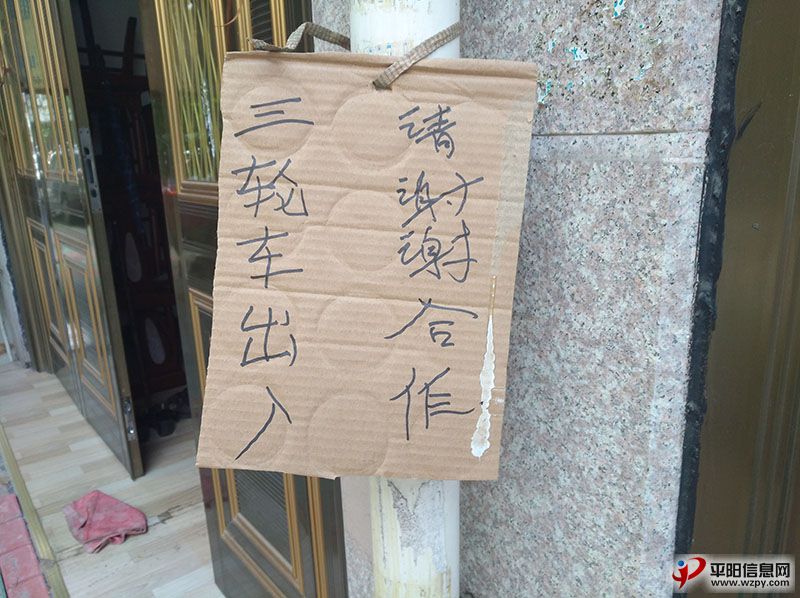 三轮车出入
请谢谢合作
平阳信息网
www.wzpy.com